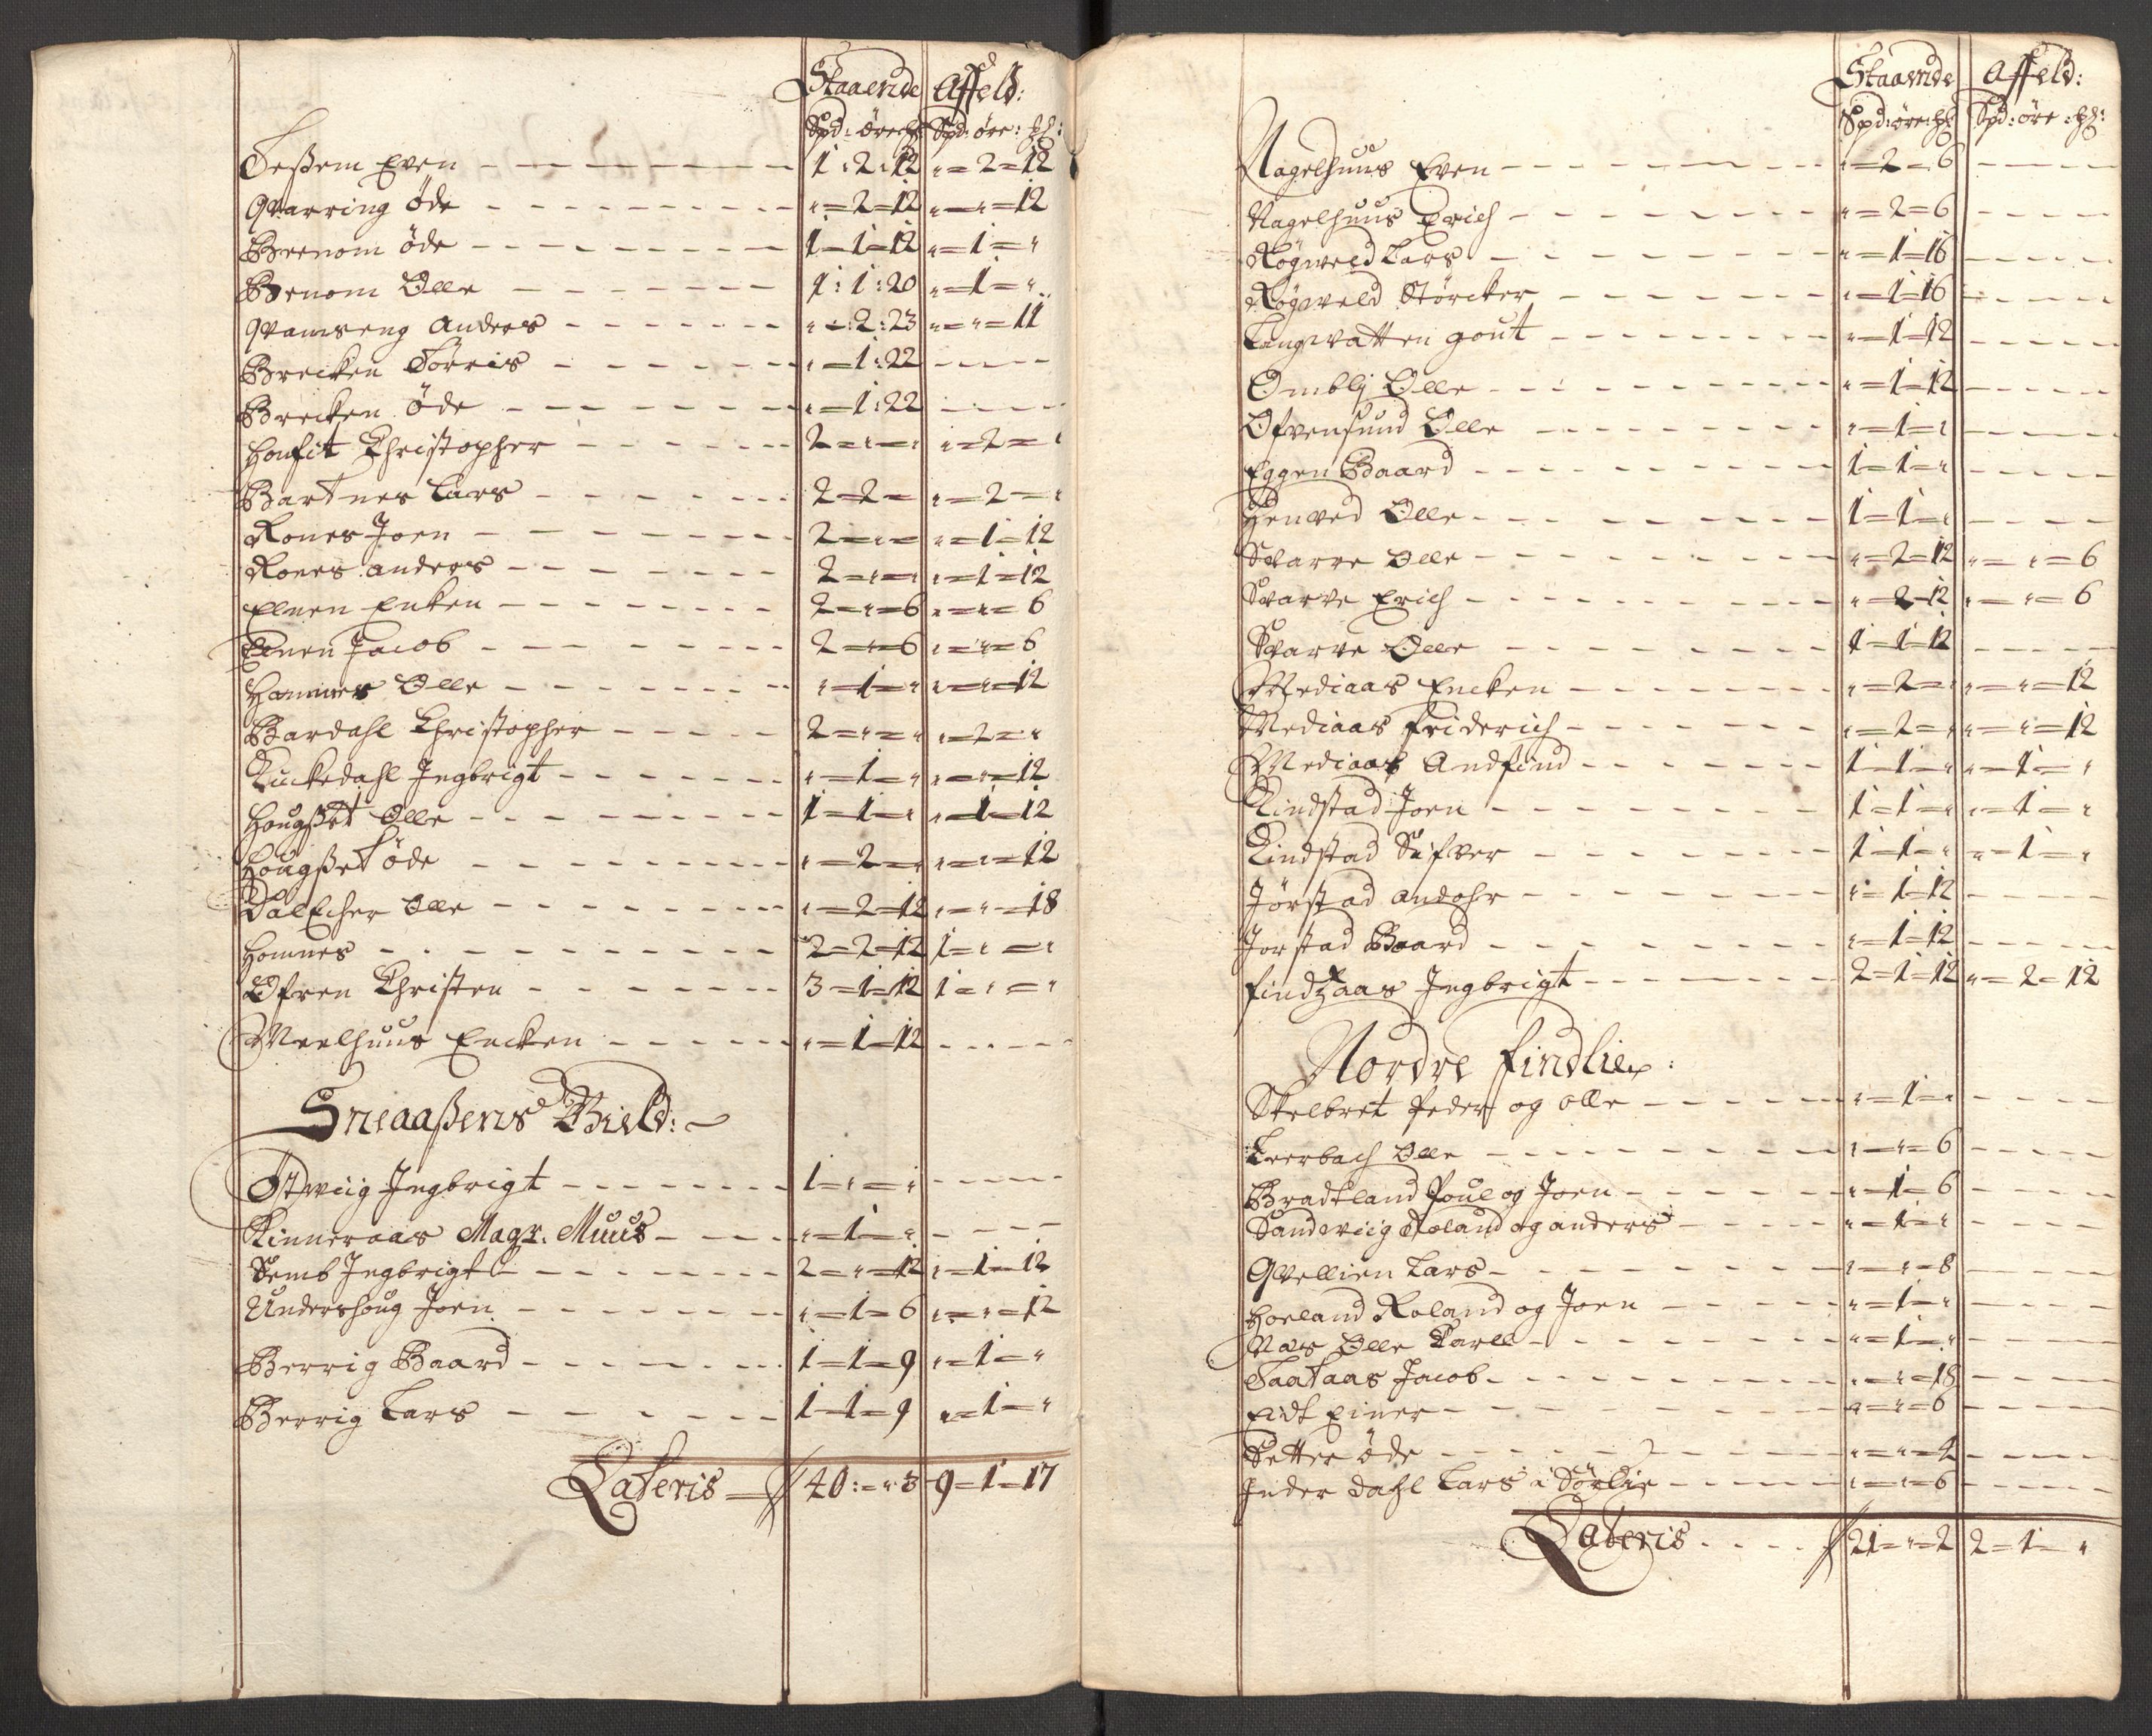 Staaende Affeld:
Spd: öre: Spd: öre:
Feßem Even 1:2:12 "=2=12
Qvarring öde "=2=12 "="=12
Breenom öde 1=1=12 "=1="
Brenom Olle 1:1:20 "=1="
Qvamseng Anders "=:2:23 "="=11
Brecken Törris "=1:22 ----
Brecken öde "=1:22 ----
Houfit Christopher 2="=" "=2="
Bartnes Lars 2=2= "=2="
Rones Joen 2="= "=1=12
Rones anders 2="=" "=1=12
Elnen Enken 2="=6 "="=6
Elnen Jacob 2="=6 "="=6
Hammer Olle "=1=" "="=12
Bardahl Christopher 2="=" "=2="
Luckedahl Ingbrigt "=1=" "="=12
Hougßet Olle 1=1=" "=1=12
Hougßet öde "=2=" "="=12
Dalecher Olle "=2=12 "="=18
Homnes 2=2=12 1="="
Ofren Christen 3=1=12 1="="
Meelhuus Encken "=1=12 ----
Sneaaßens Gield:
Östviig Ingbrigt 1="=" ----
Kinneraas Magr. Muus "=1=" ----
Semb Ingbrigt 2="=12 "=1=12
Undershoug Joen "=1=6 "="=12
Berrig Baard 1=1=9 "=1="
Berrig Lars 1=1=9 "=1="
Lateris 40:="3 9=1=17
Staaende Affeld:
Spd: öre: Spd: öre:
Nagelhuus Even "=2=6 ----
Nagelhuus Erich "=2=6 ----
Rögneld Lars "=1=16 ----
Rögneld Störcker "=1=16 ----
Langvatten gout "=1=12 ----
Omblj Olle "=1=12 ----
Ofvensund Olle "=1=" ----
Eggen Baard 1=1=" ----
Henved Olle 1=1=" ----
Svarve Olle "=2=12 "="=6
Svarve Erich "=2=12 "="=6
Svarve Olle 1=1=12 ----
Mediaas Encken "=2=" "="=12
Mediaas friderich "=2=" "="=12
Mediaas Andfind 1=1=" "=1="
Kindstad Joen 1=1=" "=1="
Kindstad Sifver 1=1=" "=1="
Jörstad andohr "=1=12 ----
Jorstad Baard "=1=12 ----
findzaas Ingbrigt 2=1=12 "=2=12
Nordre findlie:
Skelbret Peder og olle "=1=" ----
Leerbach Olle "="=6 ----
Bradtland Poul og Joen "=1=6 ----
Sandviig Roland og anders "=1=" ----
Qvellien Lars "="=8 ----
Horland Roland og Joen "=1=" ----
Naes Olle Carll "=1=" ----
Taataas Jacob "="=18 ----
Eidt Einer "="=6 ----
Setter öde "="=2 ----
Inder dahl Lars i Sörlie "="=6 ----
Lateris 21="=2 2=1="